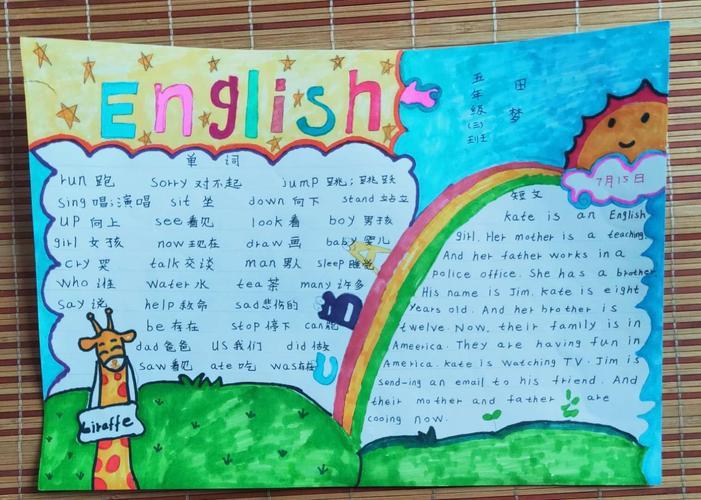 English
五年级(三)班
田梦
7月15日
单词
run 跑 sorry 对不起 jump 跳;跳跃
sing 唱;演唱 sit 坐 down 向下 stand 站立
up 向上 see 看见 look 看 boy 男孩
girl 女孩 now 现在 draw 画 baby 婴儿
cry 哭 talk 交谈 man 男人 sleep 睡觉
who 谁 water 水 tea 茶 many 许多
say 说 help 救命 sad 悲伤的
be 存在 stop 停下 can 能
dad 爸爸 us 我们 did 做
saw 看见 ate 吃 was 存在
Giraffe
短文
kate is an English
girl. Her mother is a teaching.
And her father works in a
police office. She has a brother
His name is Jim. kate is eight
Years old. And her brother is
twelve. Now, their family is in
Ameerica. They are having fun in
America. kate is watching TV. Jim is
send-ing an email to his friend. And
their mother and father are
cooing now.